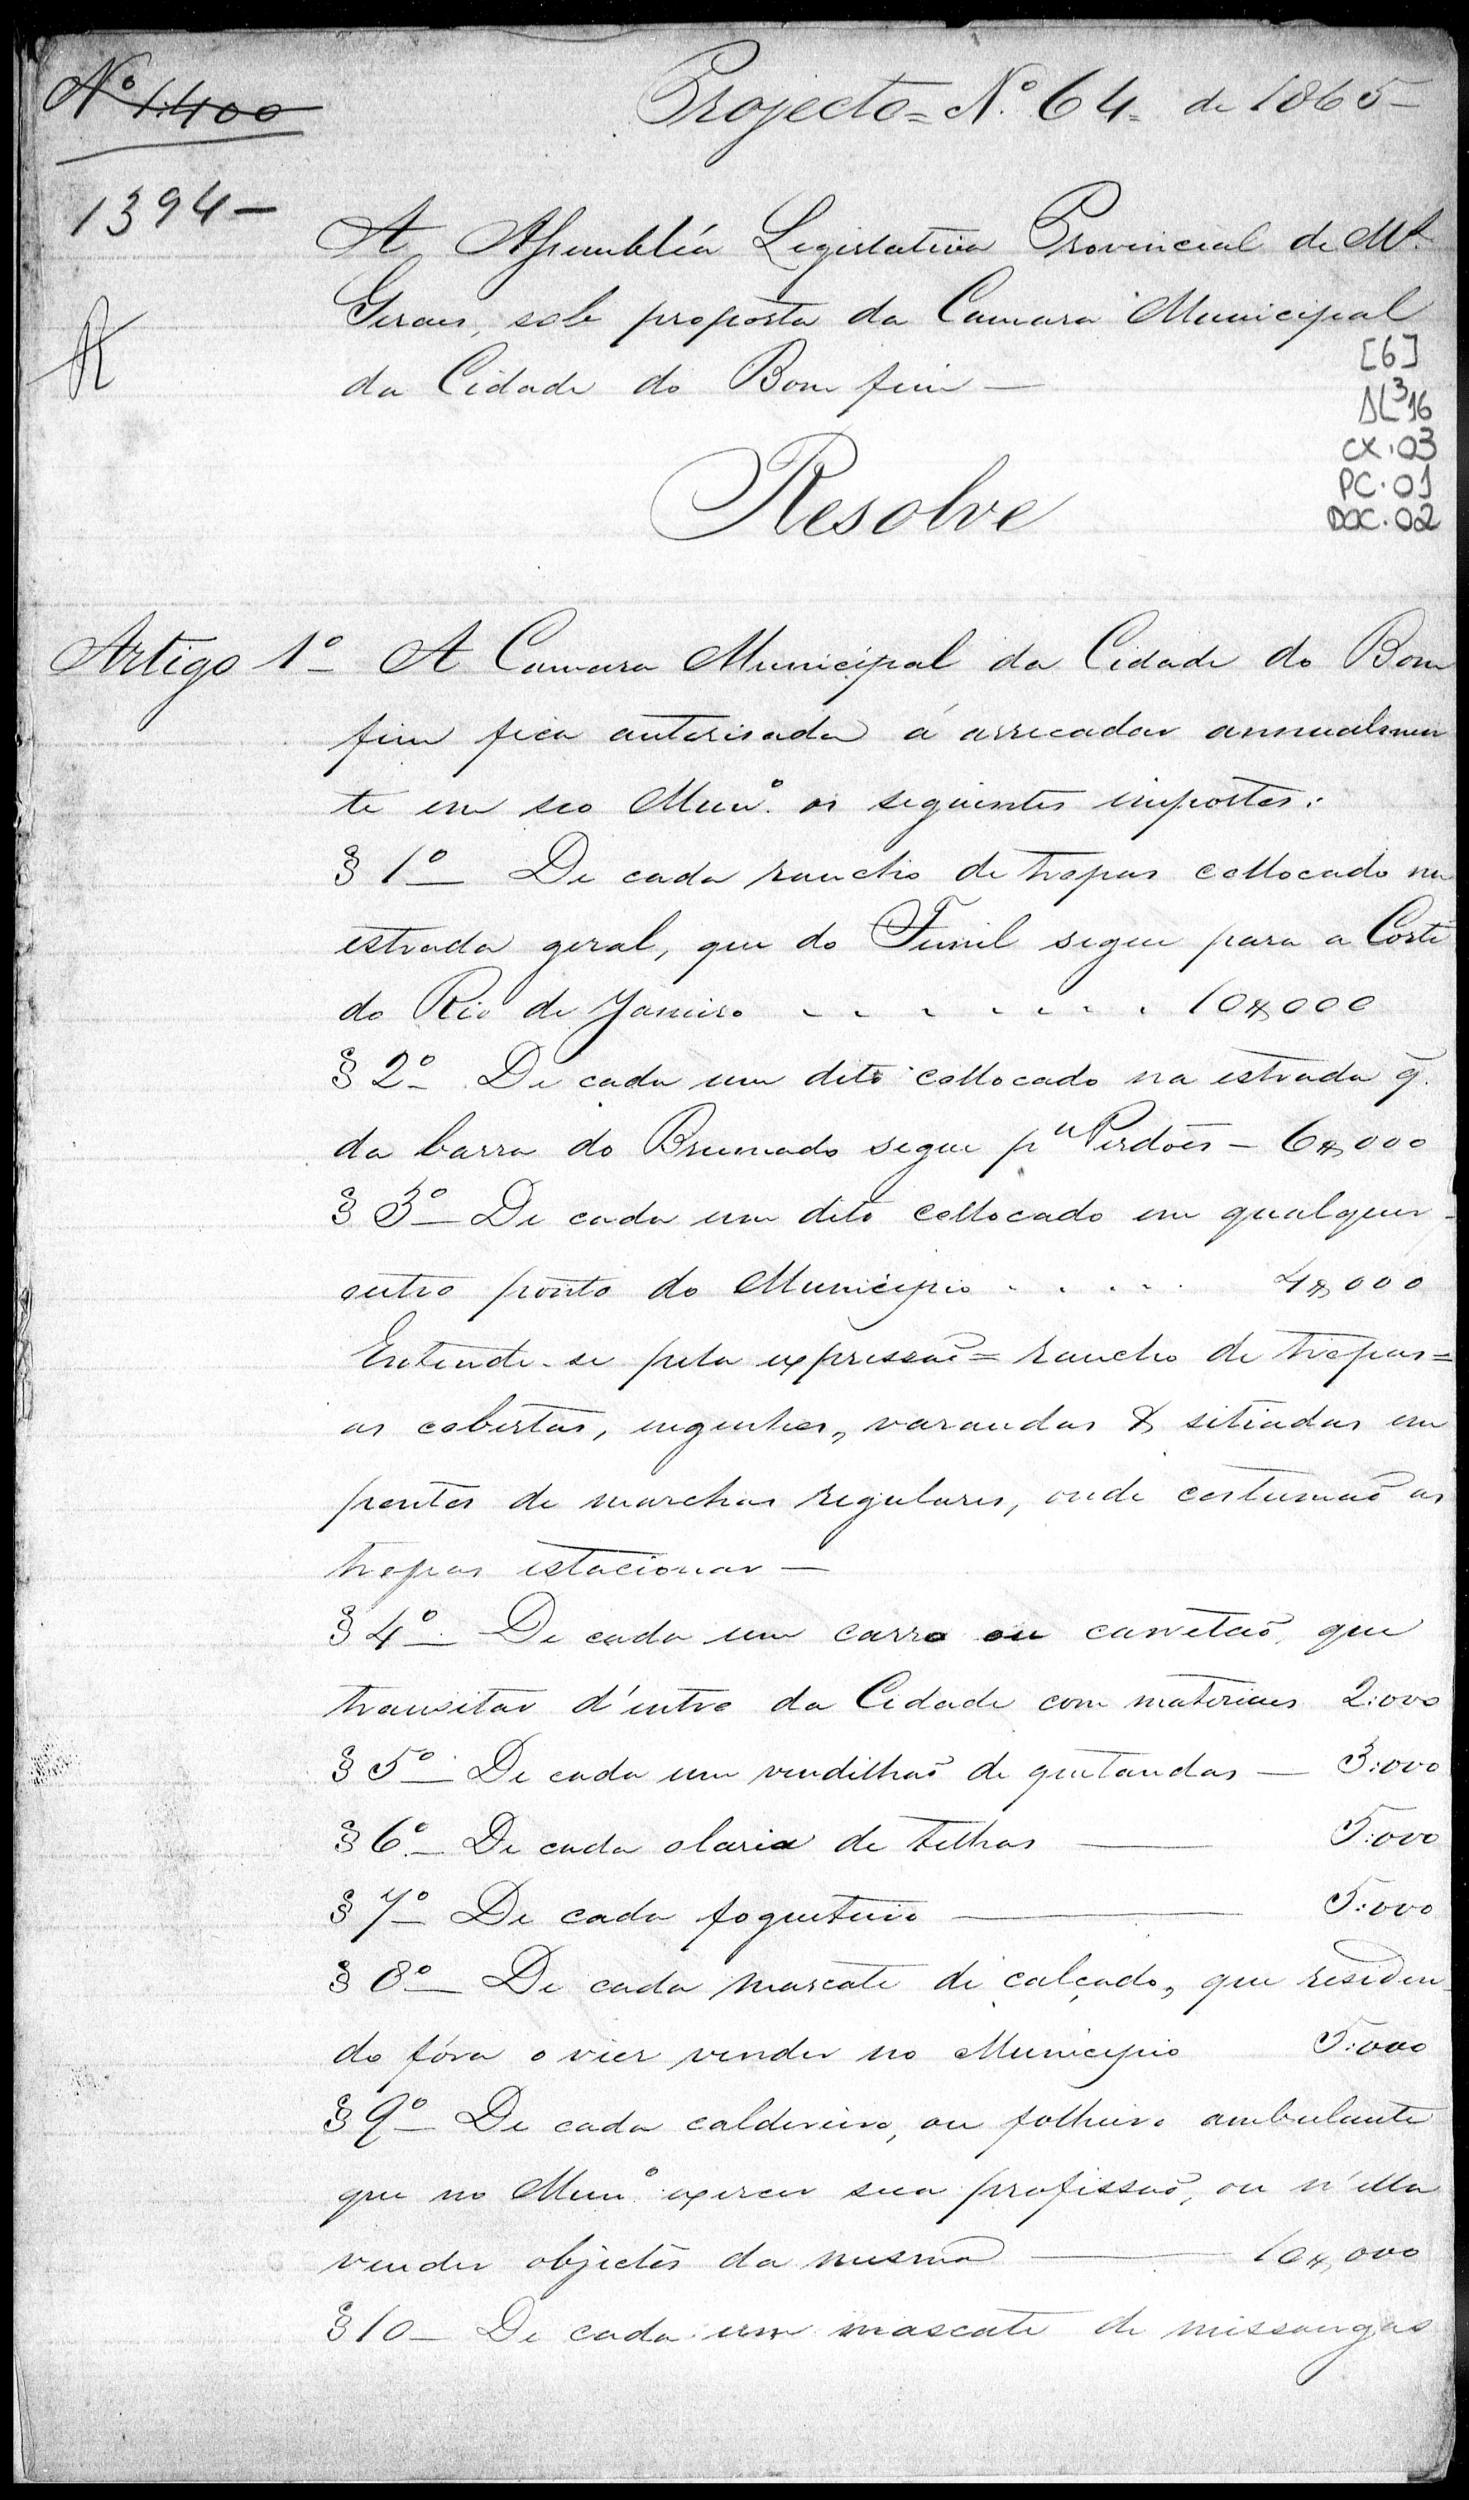 Nº 1.400
Projecto = Nº 64 = de 1865 -
1394 -
A Assembléa Legislativa Provincial de Ms.
Geraes, sob proposta da Camara Municipal
da Cidade do Bom fim —
[6]
AL³16
CX.03
PC.01
DOC.02
Resolve
Artigo 1º A Camara Municipal da Cidade do Bom
fim fica autorisada á arrecadar annualmen
te em seo Munº. os seguintes impostos:
§ 1º De cada rancho de tropas collocado na
estrada geral, que do Funil segue para a Corte
do Rio de Janeiro . . . . . . . 10$000
§ 2º De cada um dito collocado na estrada q̃.
da barra do Brumado segue pª Perdões - 6$000
§ 3º De cada um dito collocado em qualquer
outro ponto do Municipio . . . . . 4$000
Entende-se pela expressaõ = rancho de tropas =
as cobertas, engenhos, varandas & sitiadas em
pontos de marchas regulares, onde costumaõ as
tropas estacionar —
§ 4º De cada um carro ou carretaõ, que
transitar d'entro da Cidade com materiaes 2:000
§ 5º De cada um vendilhaõ de quitandas — 3:000
§ 6º De cada olaria de telhas — 5:000
§ 7º De cada fogueteiro — 5:000
§ 8º De cada mascate de calçado, que residen
do fóra o vier vender no Municipio 5:000
§ 9º De cada caldeireiro, ou folheiro ambulante
que no Munº. exercer sua profissaõ, ou n'elle
vender objectos da mesma — 10$000
§ 10 De cada um mascate de missangas